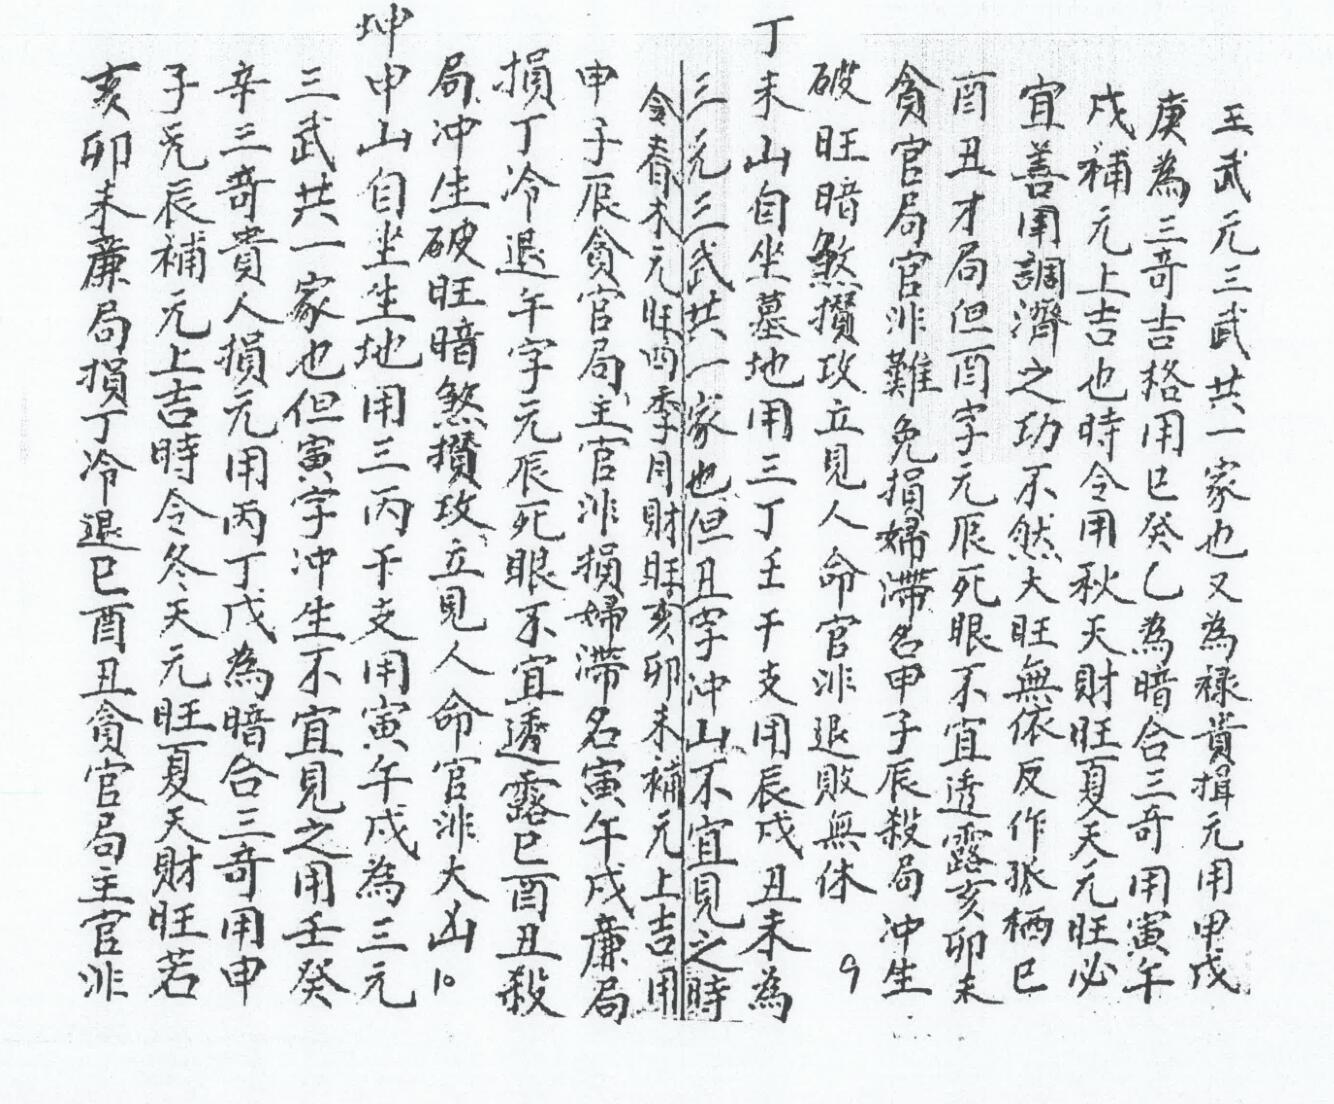 三武元三武共一家也又為祿貴揖元用甲戊
庚為三奇吉格用巳癸乙為暗合三奇用寅午
戌補元上吉也時令用秋天財旺夏天元旺必
宜善用調濟之功不然大旺無依反作孤栖巳
酉丑才局但酉字元辰死眼不宜透露亥卯未
貪官局官非難免損婦滯名甲子辰殺局冲生
破旺暗煞攢攻立見人命官非退敗無休 9
丁未山自坐墓地用三丁壬干支用辰戌丑未為
三元三武共一家也但丑字冲山不宜見之時
令春木元旺四季月財旺亥卯未補元上吉用
申子辰貪官局主官非損婦滯名寅午戌廉局
損丁冷退午字元辰死眼不宜透露巳酉丑殺
局冲生破旺暗煞攢攻立見人命官非大凶 10
坤申山自坐生地用三丙干支用寅午戌為三元
三武共一家也但寅字冲生不宜見之用壬癸
辛三奇貴人損元用丙丁戊為暗合三奇用申
子辰補元上吉時令冬天元旺夏天財旺若
亥卯未廉局損丁冷退巳酉丑貪官局主官非